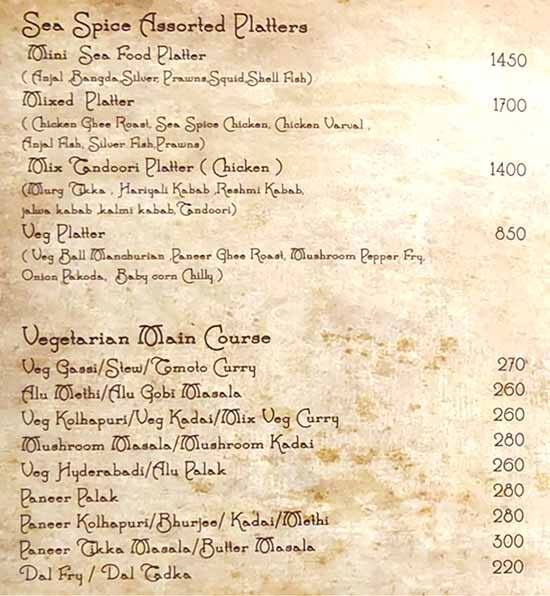 Sea Spice Assorted Platters
Mini Sea Food Platter 1450
( Anjal ,Bangda,Silver, Prawns,Squid,Shell Fish)
Mixed Platter 1700
( Chicken Ghee Roast, Sea Spice Chicken, Chicken Varval ,
Anjal Fish, Silver Fish,Prawns)
Mix Tandoori Platter ( Chicken ) 1400
(Murg Tikka , Hariyali Kabab ,Reshmi Kabab,
jalwa kabab ,kalmi kabab,Tandoori)
Veg Platter 850
( Veg Ball Manchurian ,Paneer Ghee Roast, Mushroom Pepper Fry,
Onion Pakoda, Baby corn Chilly )
Vegetarian Main Course
Veg Gassi/Stew/Tomoto Curry 270
Alu Methi/Alu Gobi Masala 260
Veg Kolhapuri/Veg Kadai/Mix Veg Curry 260
Mushroom Masala/Mushroom Kadai 280
Veg Hyderabadi/Alu Palak 260
Paneer Palak 280
Paneer Kolhapuri/Bhurjee/ Kadai/Methi 280
Paneer Tikka Masala/Butter Masala 300
Dal Fry / Dal Tadka 220